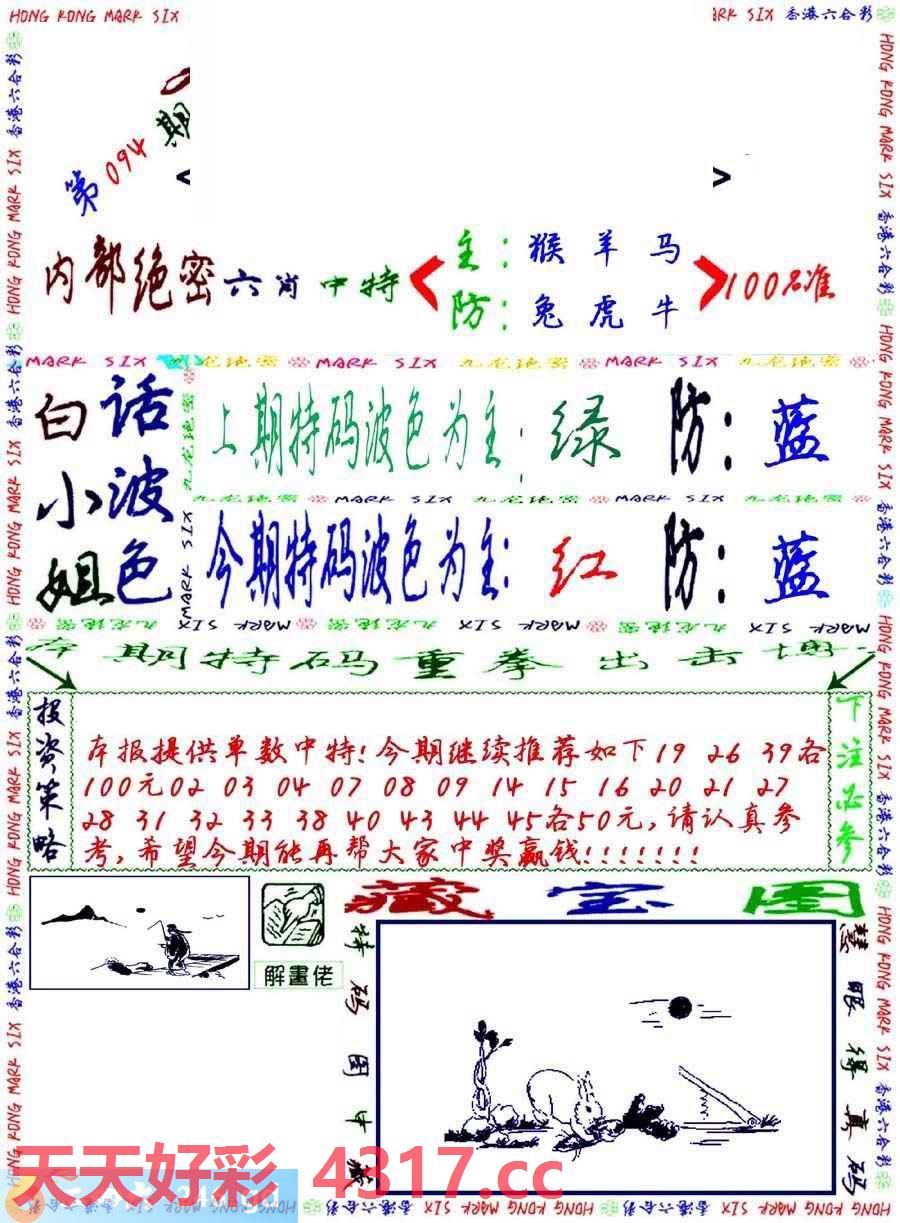 HONG KONG MARK SIX
ARK SIX 香港六合彩
第094期
< >
内部绝密六肖中特
主：猴羊马
防：兔虎牛
100%准
MARK SIX 九龙绝密 MARK SIX 九龙绝密 MARK SIX 九龙绝密
白话
小波
姐色
上期特码波色为主：绿 防：蓝
九龙绝密 MARK SIX 九龙绝密 MARK SIX
今期特码波色为主：红 防：蓝
九龙绝密 MARK SIX 九龙绝密 MARK SIX 九龙绝密 MARK SIX
本期特码重拳出击
投资策略
本报提供单数中特!今期继续推荐如下19 26 39各
100元02 03 04 07 08 09 14 15 16 20 21 27
28 31 32 33 38 40 43 44 45各50元,请认真参
考,希望今期能再帮大家中奖赢钱!!!!!!!
下注必参
藏宝图
解畫佬
特码图中藏
慧眼得真码
天天好彩 4317.cc
HONG KONG MARK SIX 香港六合彩